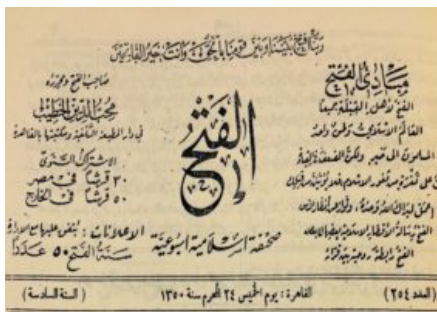 ربنا افتح بيننا وبين قومنا بالحق وأنت خير الفاتحين
مبادئ الفتح
الفتح لأهل القبلة جميعا
العالم الاسلامي وطن واحد
المسلمون الى خير ولكن
على ثغرة من ثغور الاسلام فلا يؤتين من قبلك
الفتح
صحيفة اسلامية اسبوعية
صاحب الفتح ومحرره
محب الدين الخطيب
في دار المطبعة السلفية ومكتبتها بالقاهرة
الاشتراك السنوي
٣٠ قرشا في مصر
٥٠ قرشا في الخارج
الاعلانات : يتفق عليها مع الادارة
سنة الفتح ٥٠ عددا
(العدد ٢٥٤)
القاهرة : يوم الخميس ٢٤ المحرم سنة ١٣٥٠
(السنة السادسة)